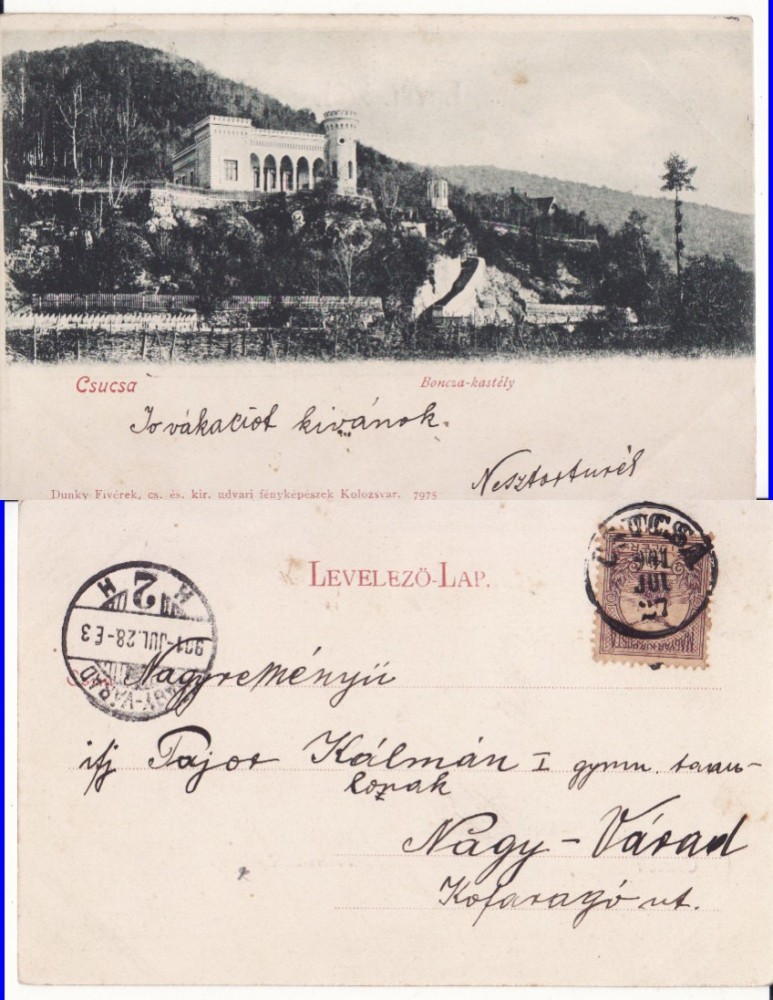 Csucsa
Boncza-kastély
Jo vákatiót kivánok.
Nesztorturél
Dunky Fivérek, cs. és. kir. udvari fényképészek Kolozsvar. 7975
LEVELEZŐ-LAP.
CSUCSA
901
JUL
27
2
901-JUL.28-E3
NAGY-VÁRAD
Nagyreményü
ifj Tajor Kálmán I gymn. tanu-
lonak
Nagy-Várad
Kofaragó ut.
MAGYAR KIR. POSTA